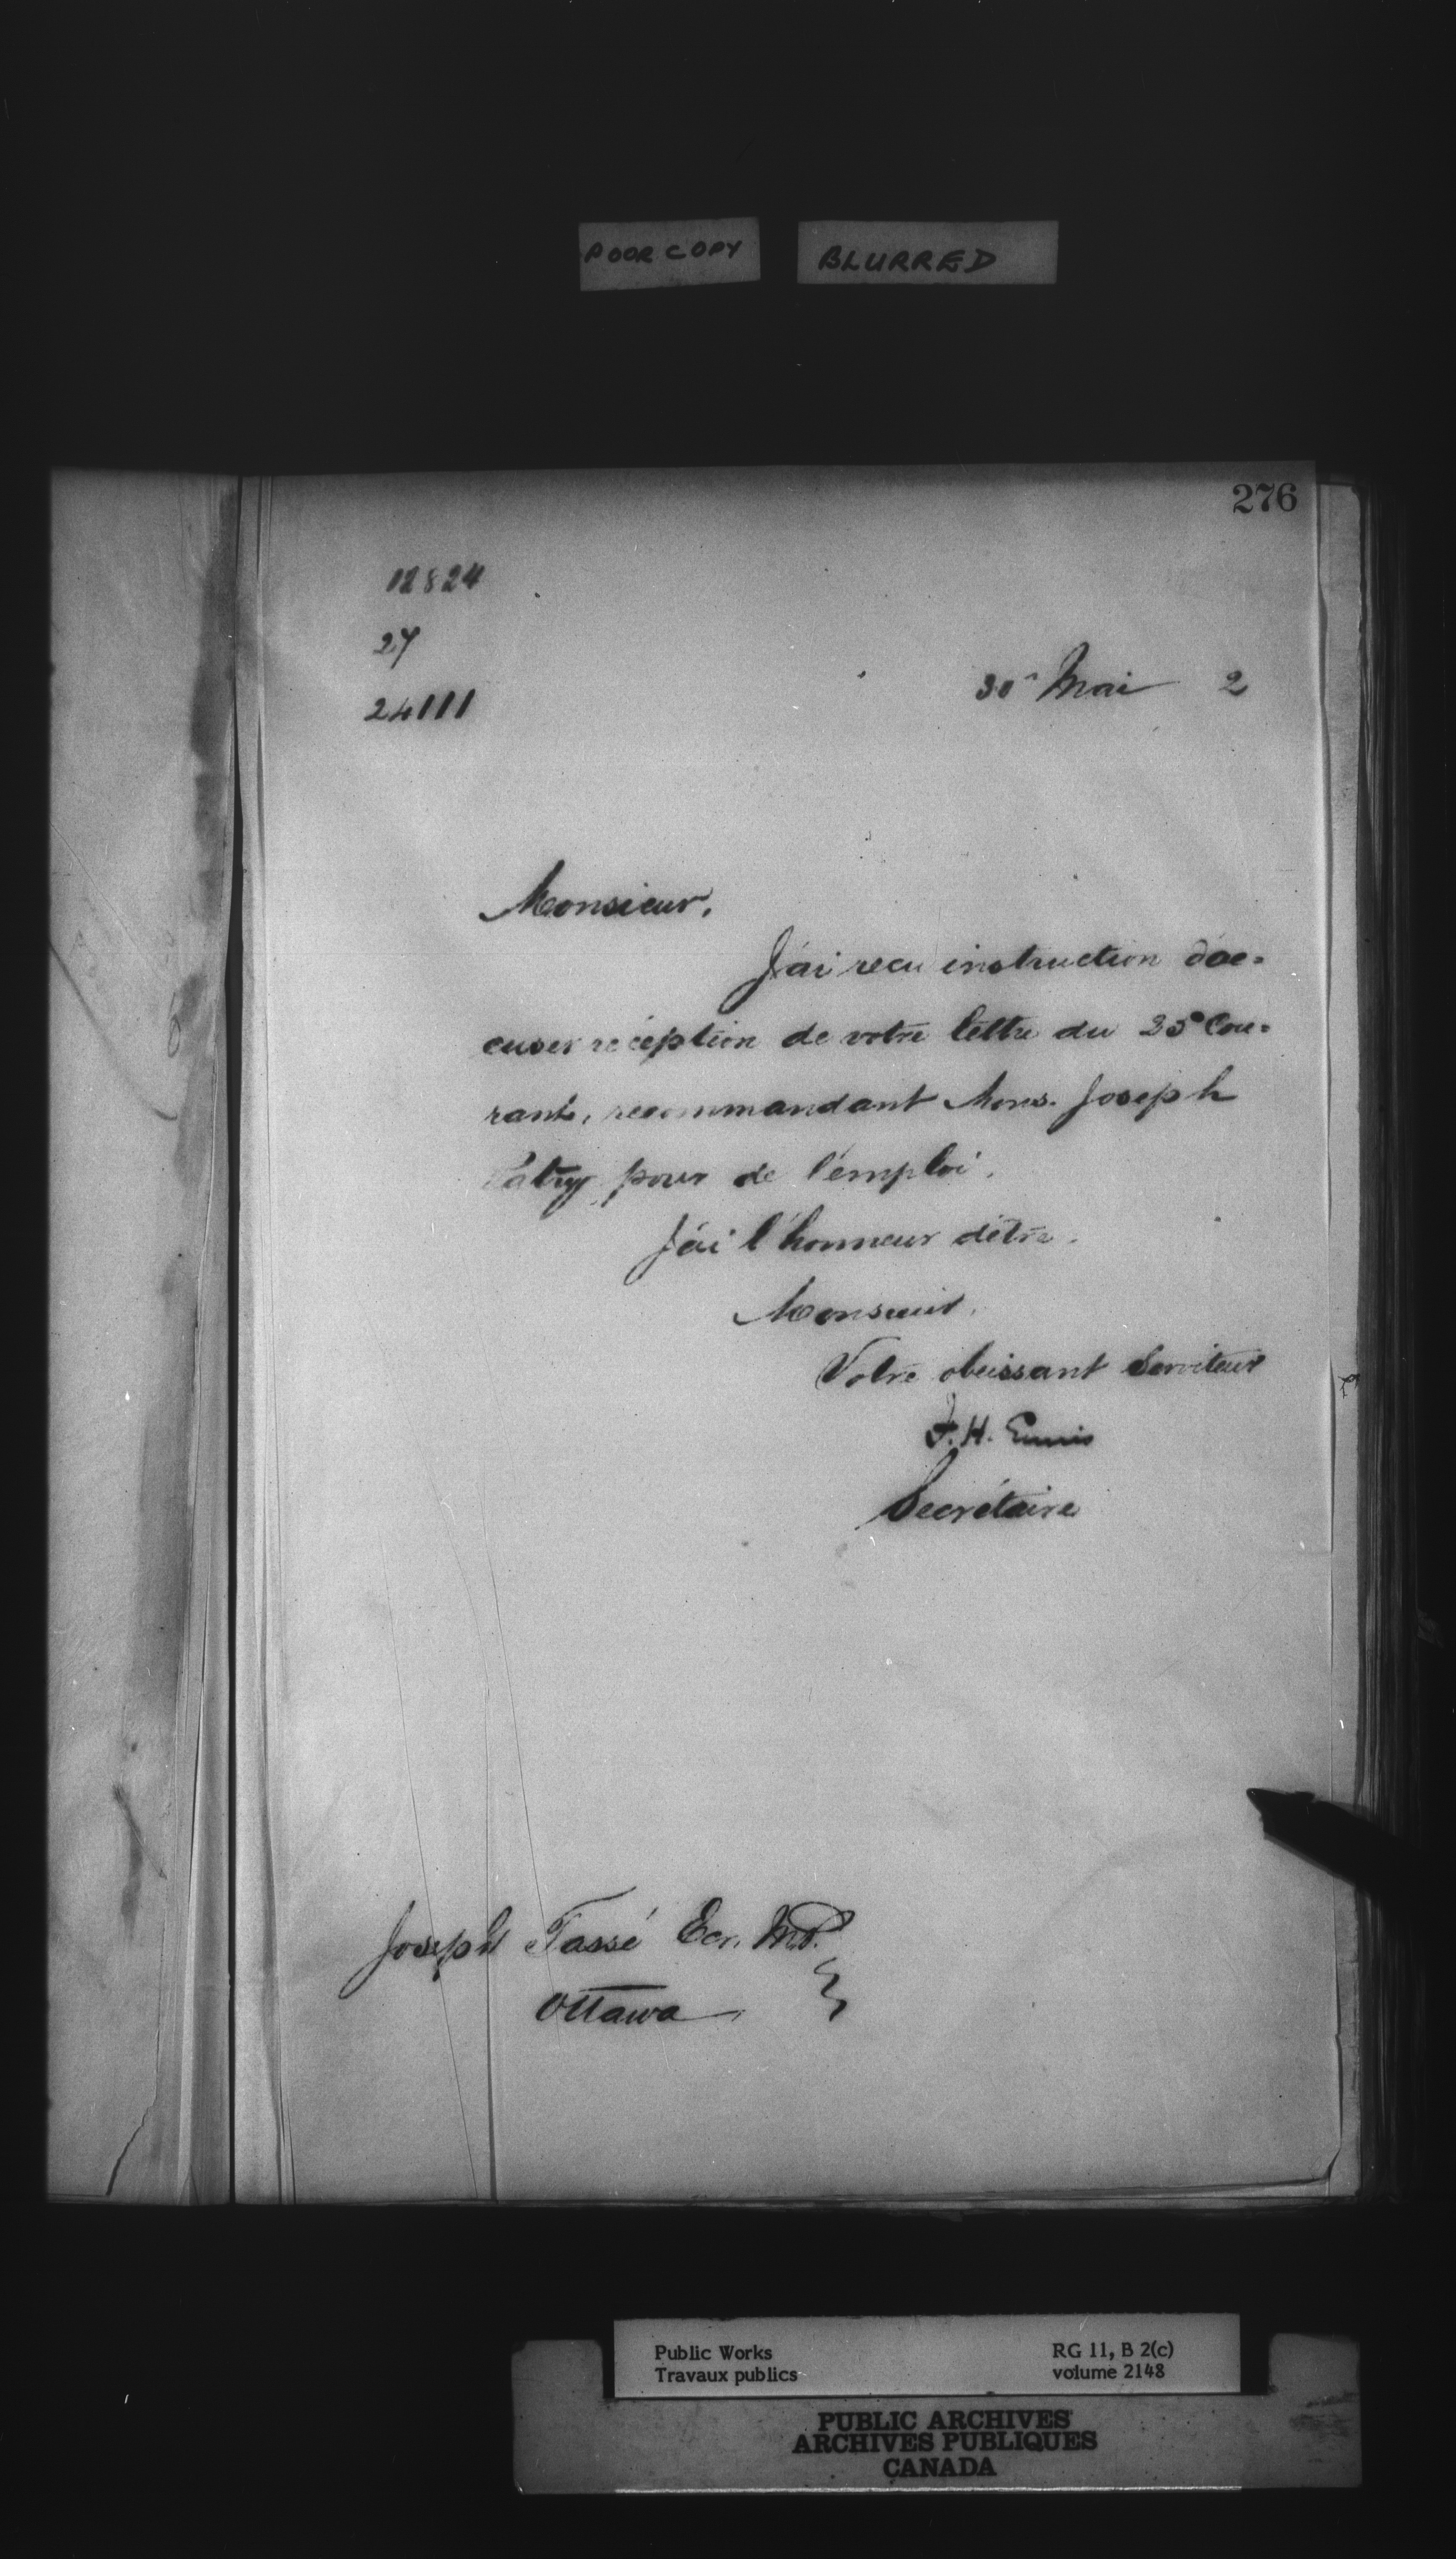 POOR COPY BLURRED
276
12824
27
24111
30 Mai 2
Monsieur,
J'ai recu instruction d'ac=
cuser reception de votre lettre du 25 Cou=
rant, recommandant Mons. Joseph
Patry pour de l'emploi.
J'ai l'honneur d'être.
Monsieur,
Votre obeissant Serviteur
F. H. Ennis
Secrétaire
Joseph Tassé Ecr. M.P.
Ottawa
Public Works
Travaux publics
RG 11, B 2(c)
volume 2148
PUBLIC ARCHIVES
ARCHIVES PUBLIQUES
CANADA